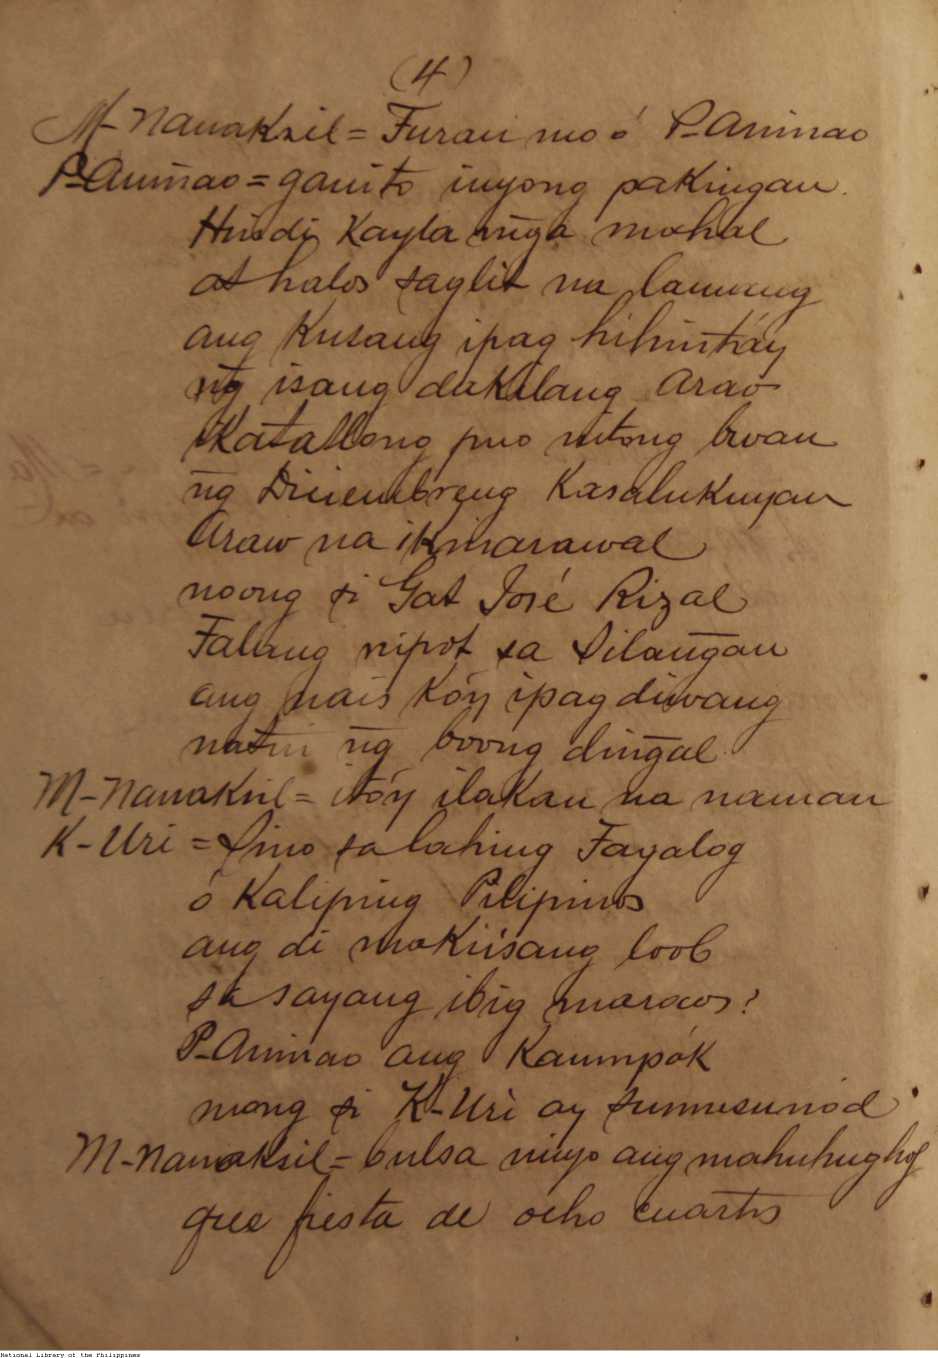 (4)
M-Nanaksil = Turan mo ó P-Animao
P-Animao = ganito inyong pakingan.
Hindi Kayla n͠ga mahal
at halos saglit na lamang
ang Kusang ipag hihintáy
n͠g isang dakilang Arao
Ikatatlong puo nitong bwan
n͠g Diciembreng Kasalukuyan
Araw na ikinarawal
noong si Gat José Rizal
Talang nipot sa Silan͠gan
ang nais Kóy ipag diwang
natin n͠g boong din͠gal
M-Nanaksil = itóy ilakan na naman
K-Uri = Sino sa lahing Tagalog
ó Kaliping Pilipinos
ang di makiisang loob
sa sayang ibig maraos?
P-Animao ang Kaumpók
mong si K-Uri ay sumusunód
M-Nanaksil = bulsa niyo ang mahuhughog
que fiesta de ocho cuartos
National Library of the Philippines